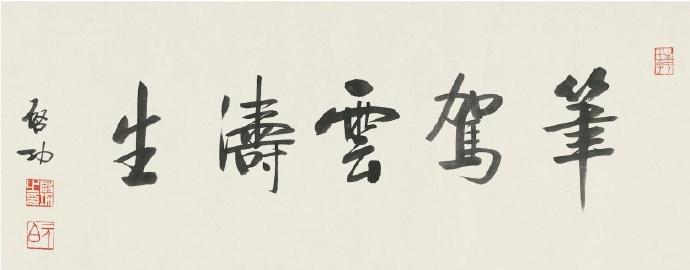 筆駕雲濤生
啓功